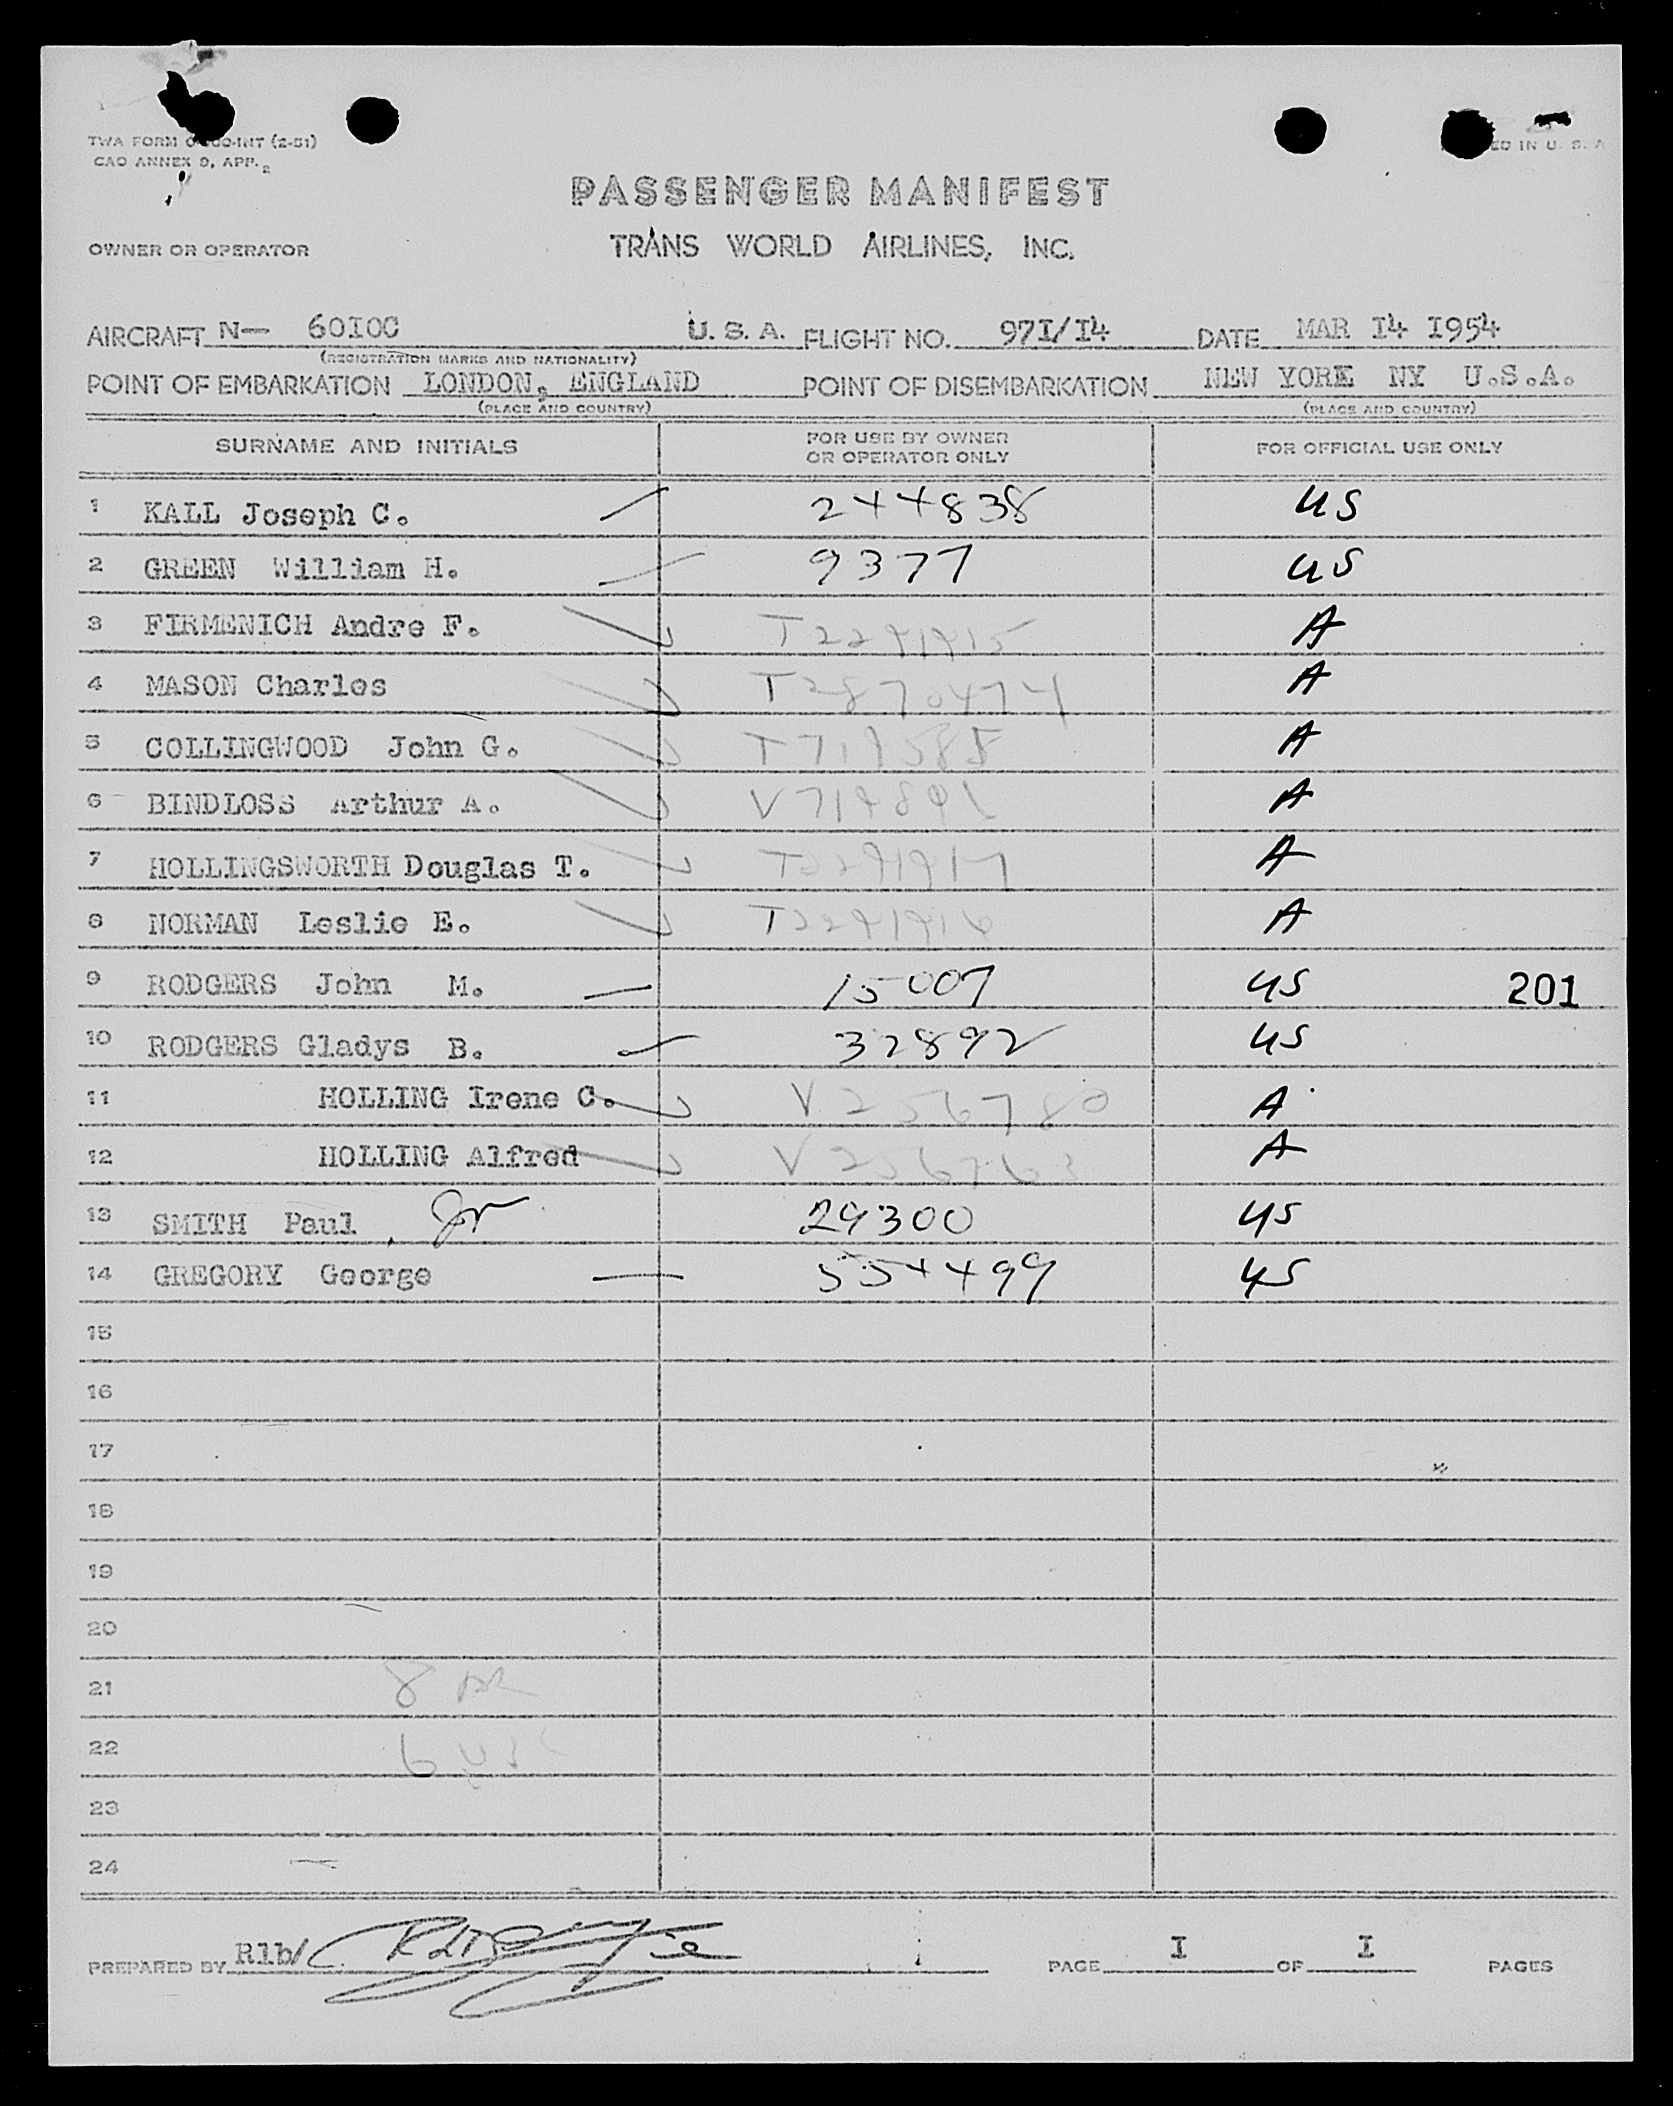 TWA FORM (2-51)
CAO ANNEX 9, APP. 2
ED IN U. S. A
PASSENGER MANIFEST
OWNER OR OPERATOR TRANS WORLD AIRLINES, INC.
AIRCRAFT N— 60I00 U. S. A. FLIGHT NO. 97I/I4 DATE MAR I4 I954
(REGISTRATION MARKS AND NATIONALITY)
POINT OF EMBARKATION LONDON, ENGLAND POINT OF DISEMBARKATION NEW YORK NY U.S.A.
(PLACE AND COUNTRY) (PLACE AND COUNTRY)
SURNAME AND INITIALS FOR USE BY OWNER OR OPERATOR ONLY FOR OFFICIAL USE ONLY
1 KALL Joseph C. 244838 US
2 GREEN William H. 9377 US
3 FIRMENICH Andre F. T2291915 A
4 MASON Charles T2870474 A
5 COLLINGWOOD John G. A
6 BINDLOSS Arthur A. A
7 HOLLINGSWORTH Douglas T. T2291917 A
8 NORMAN Leslie E. T2291916 A
9 RODGERS John M. 15007 US 201
10 RODGERS Gladys B. 32892 US
11 HOLLING Irene C. V256780 A
12 HOLLING Alfred V256763 A
13 SMITH Paul , Jr 29300 US
14 GREGORY George 554499 US
15
16
17
18
19
20
21 8
22 6
23
24
PREPARED BY Rlb/ PAGE I OF I PAGES